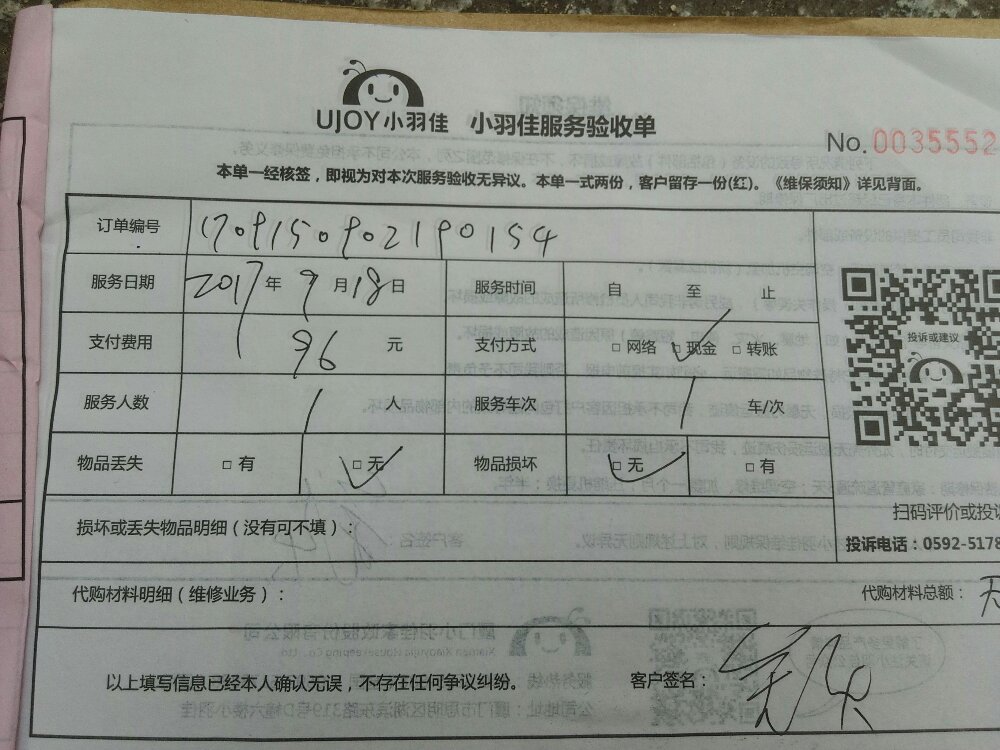 UJOY小羽佳 小羽佳服务验收单
No. 0035552
本单一经核签，即视为对本次服务验收无异议。本单一式两份，客户留存一份(红)。《维保须知》详见背面。
订单编号 1709150902190154
服务日期 2017年9月18日 服务时间 自 至 止
支付费用 96 元 支付方式 □网络 □现金 □转账
投诉或建议
服务人数 1 人 服务车次 1 车/次
物品丢失 □有 □无 物品损坏 □无 □有
扫码评价或投
损坏或丢失物品明细（没有可不填）：
投诉电话：0592-5178
代购材料明细（维修业务）： 代购材料总额：
以上填写信息已经本人确认无误，不存在任何争议纠纷。 客户签名：